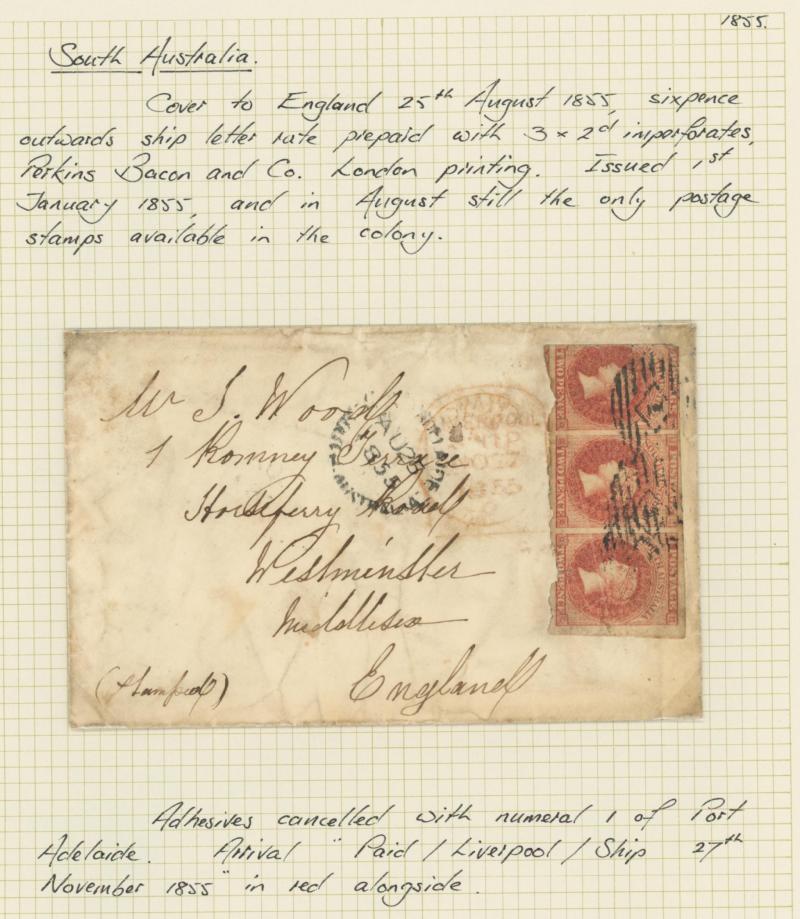 1855.
South Australia.
Cover to England 25th August 1855, sixpence
outwards ship letter rate prepaid with 3 x 2d imperforates,
Perkins Bacon and Co. London printing. Issued 1st
January 1855, and in August still the only postage
stamps available in the colony.
TWO PENCE
TWO PENCE
TWO PENCE
POSTAGE
Mr J. Wood
1 Romney Terrace
Horseferry Road
Westminster
Middlesex
England
(stamped)
ADELAIDE
AU 25
1855
PAID
LIVERPOOL
SHIP
Adhesives cancelled with numeral 1 of Port
Adelaide. Arrival "Paid / Liverpool / Ship 27th
November 1855" in red alongside.